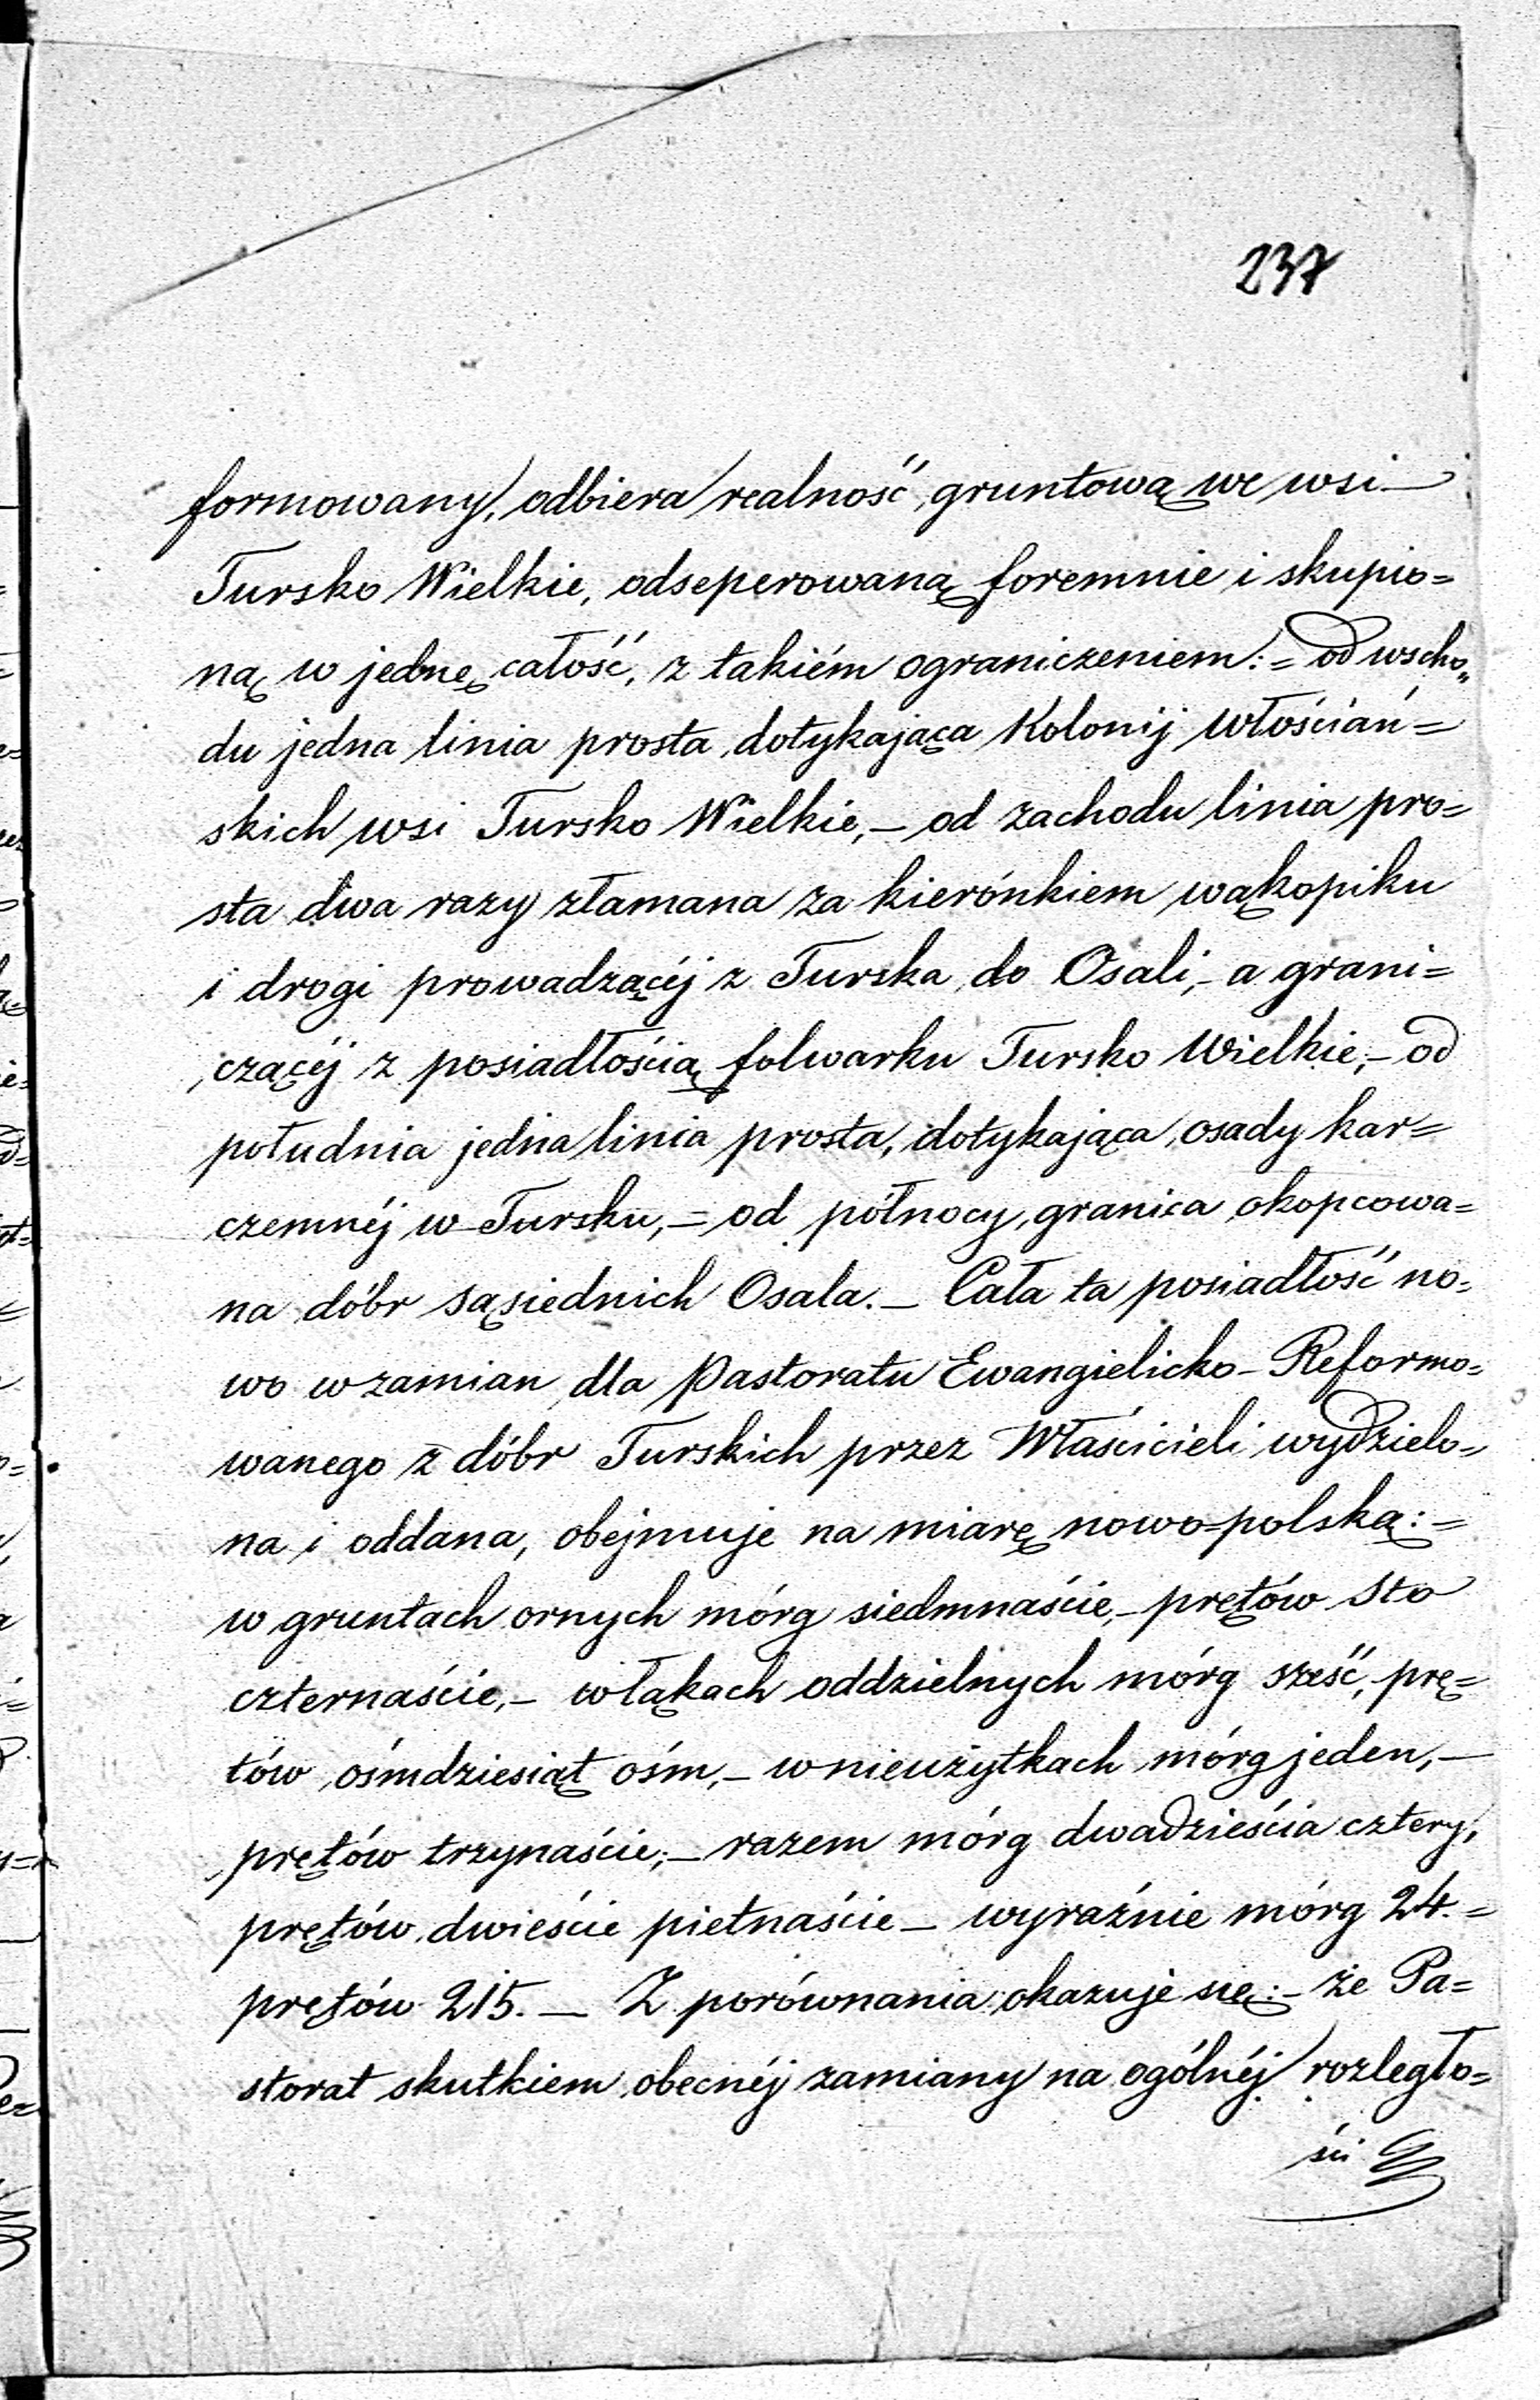 237
formowany, odbiera realność gruntową we wsi —
Tursko Wielkie, odseperowaną foremnie i skupio=
ną w jednę całość, z takiém ograniczeniem: = od wscho„
du jedna linia prosta dotykająca Kolonij włościań=
skich wsi Tursko Wielkie, — od zachodu linia pro=
sta dwa razy złamana za kierónkiem wąkopiku
i drogi prowadzącéj z Turska do Osali, - a grani=
czącéj z posiadłością folwarku Tursko Wielkie, - od
południa jedna linia prosta, dotykająca osady kar=
czemnéj w Tursku, = od północy, granica okopcowa=
na dóbr sąsiednich Osala. — Cała ta posiadłość no=
wo w zamian dla Pastoratu Ewangielicko - Reformo=
wanego z dóbr Turskich przez Właścicieli wydzielo=
na i oddana, obejmuje na miarę nowo=polską: =
w gruntach ornych mórg siedmnaście, - prętów sto
czternaście, - w łąkach oddzielnych mórg sześć, prę=
tów ośmdziesiąt ośm, - w nieużytkach mórg jeden, —
prętów trzynaście; — razem mórg dwadzieścia cztery,
prętów dwieście pietnaście — wyraźnie mórg 24. =
prętów 215. — Z porównania okazuje się: - że Pa=
storat skutkiem obecnéj zamiany na ogólnéj rozległo=
ści